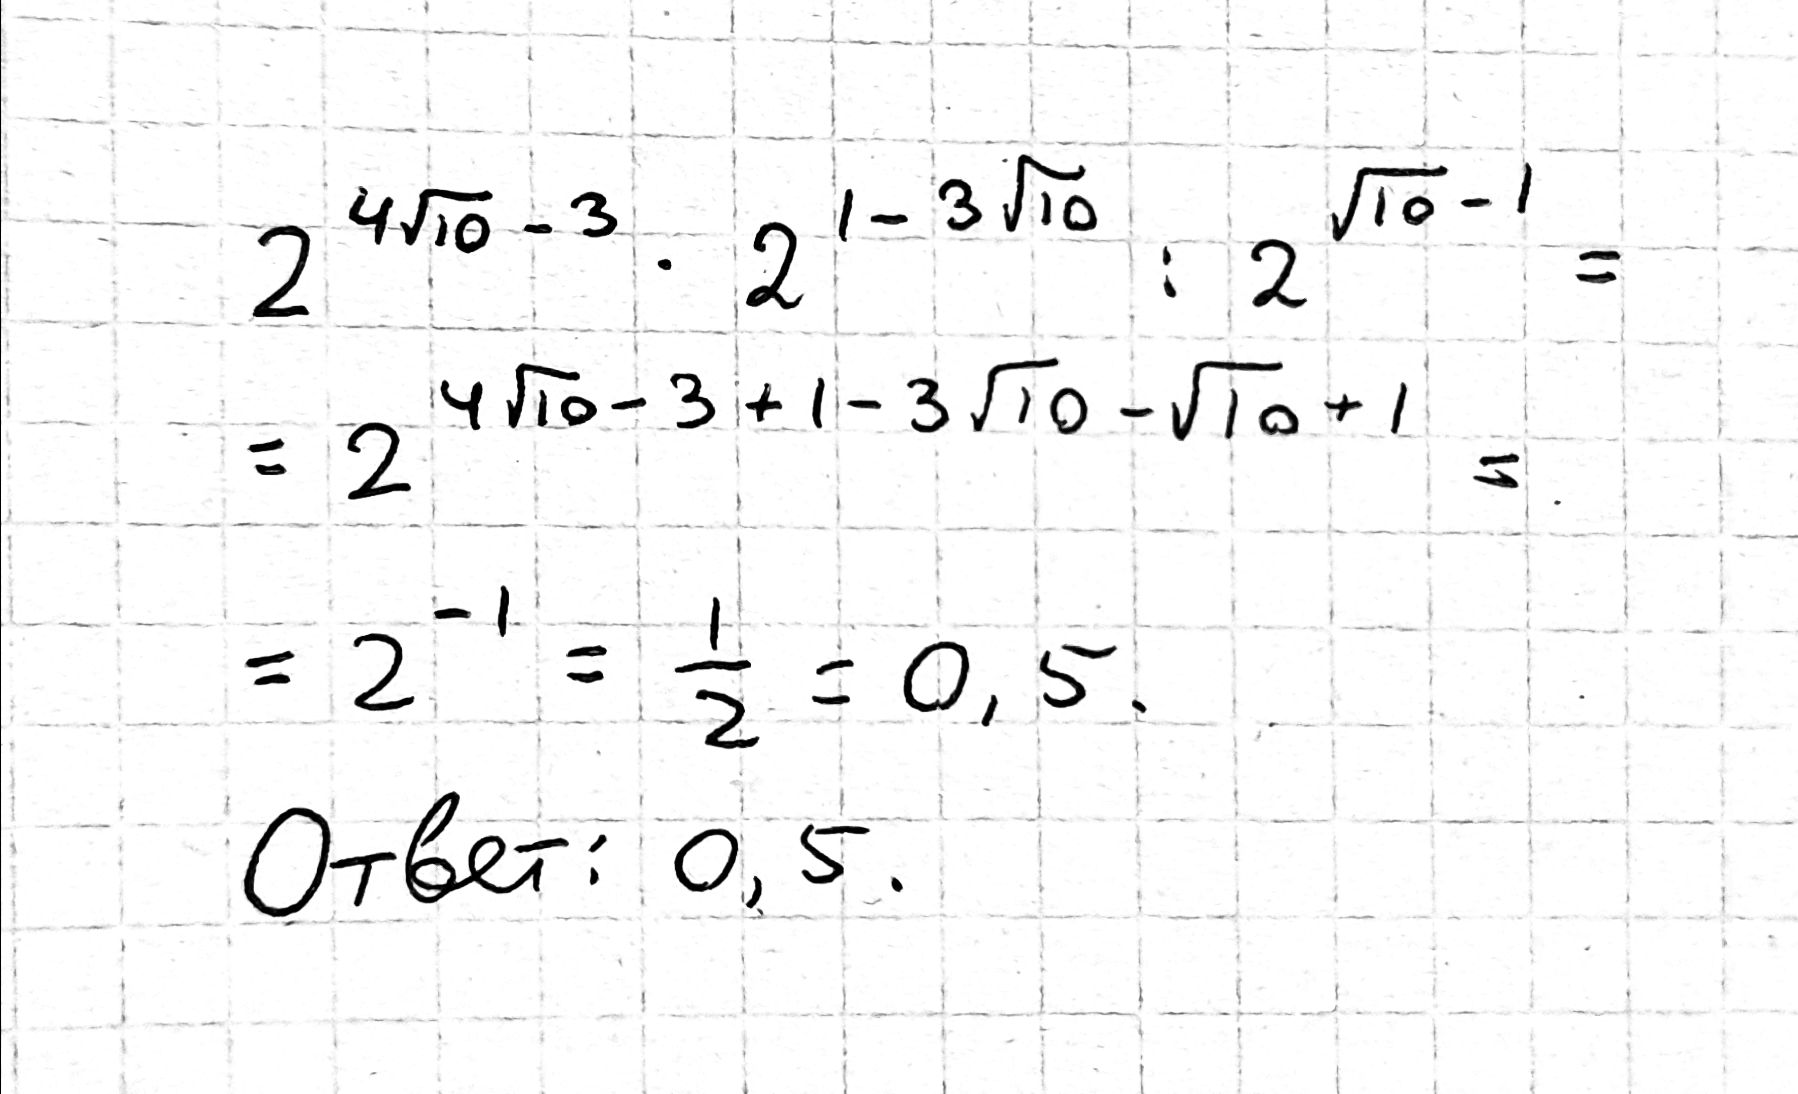 2^{4√10 - 3} · 2^{1 - 3√10} : 2^{√10 - 1} =
= 2^{4√10 - 3 + 1 - 3√10 - √10 + 1} =
= 2^{-1} = \frac{1}{2} = 0,5.
Ответ: 0,5.